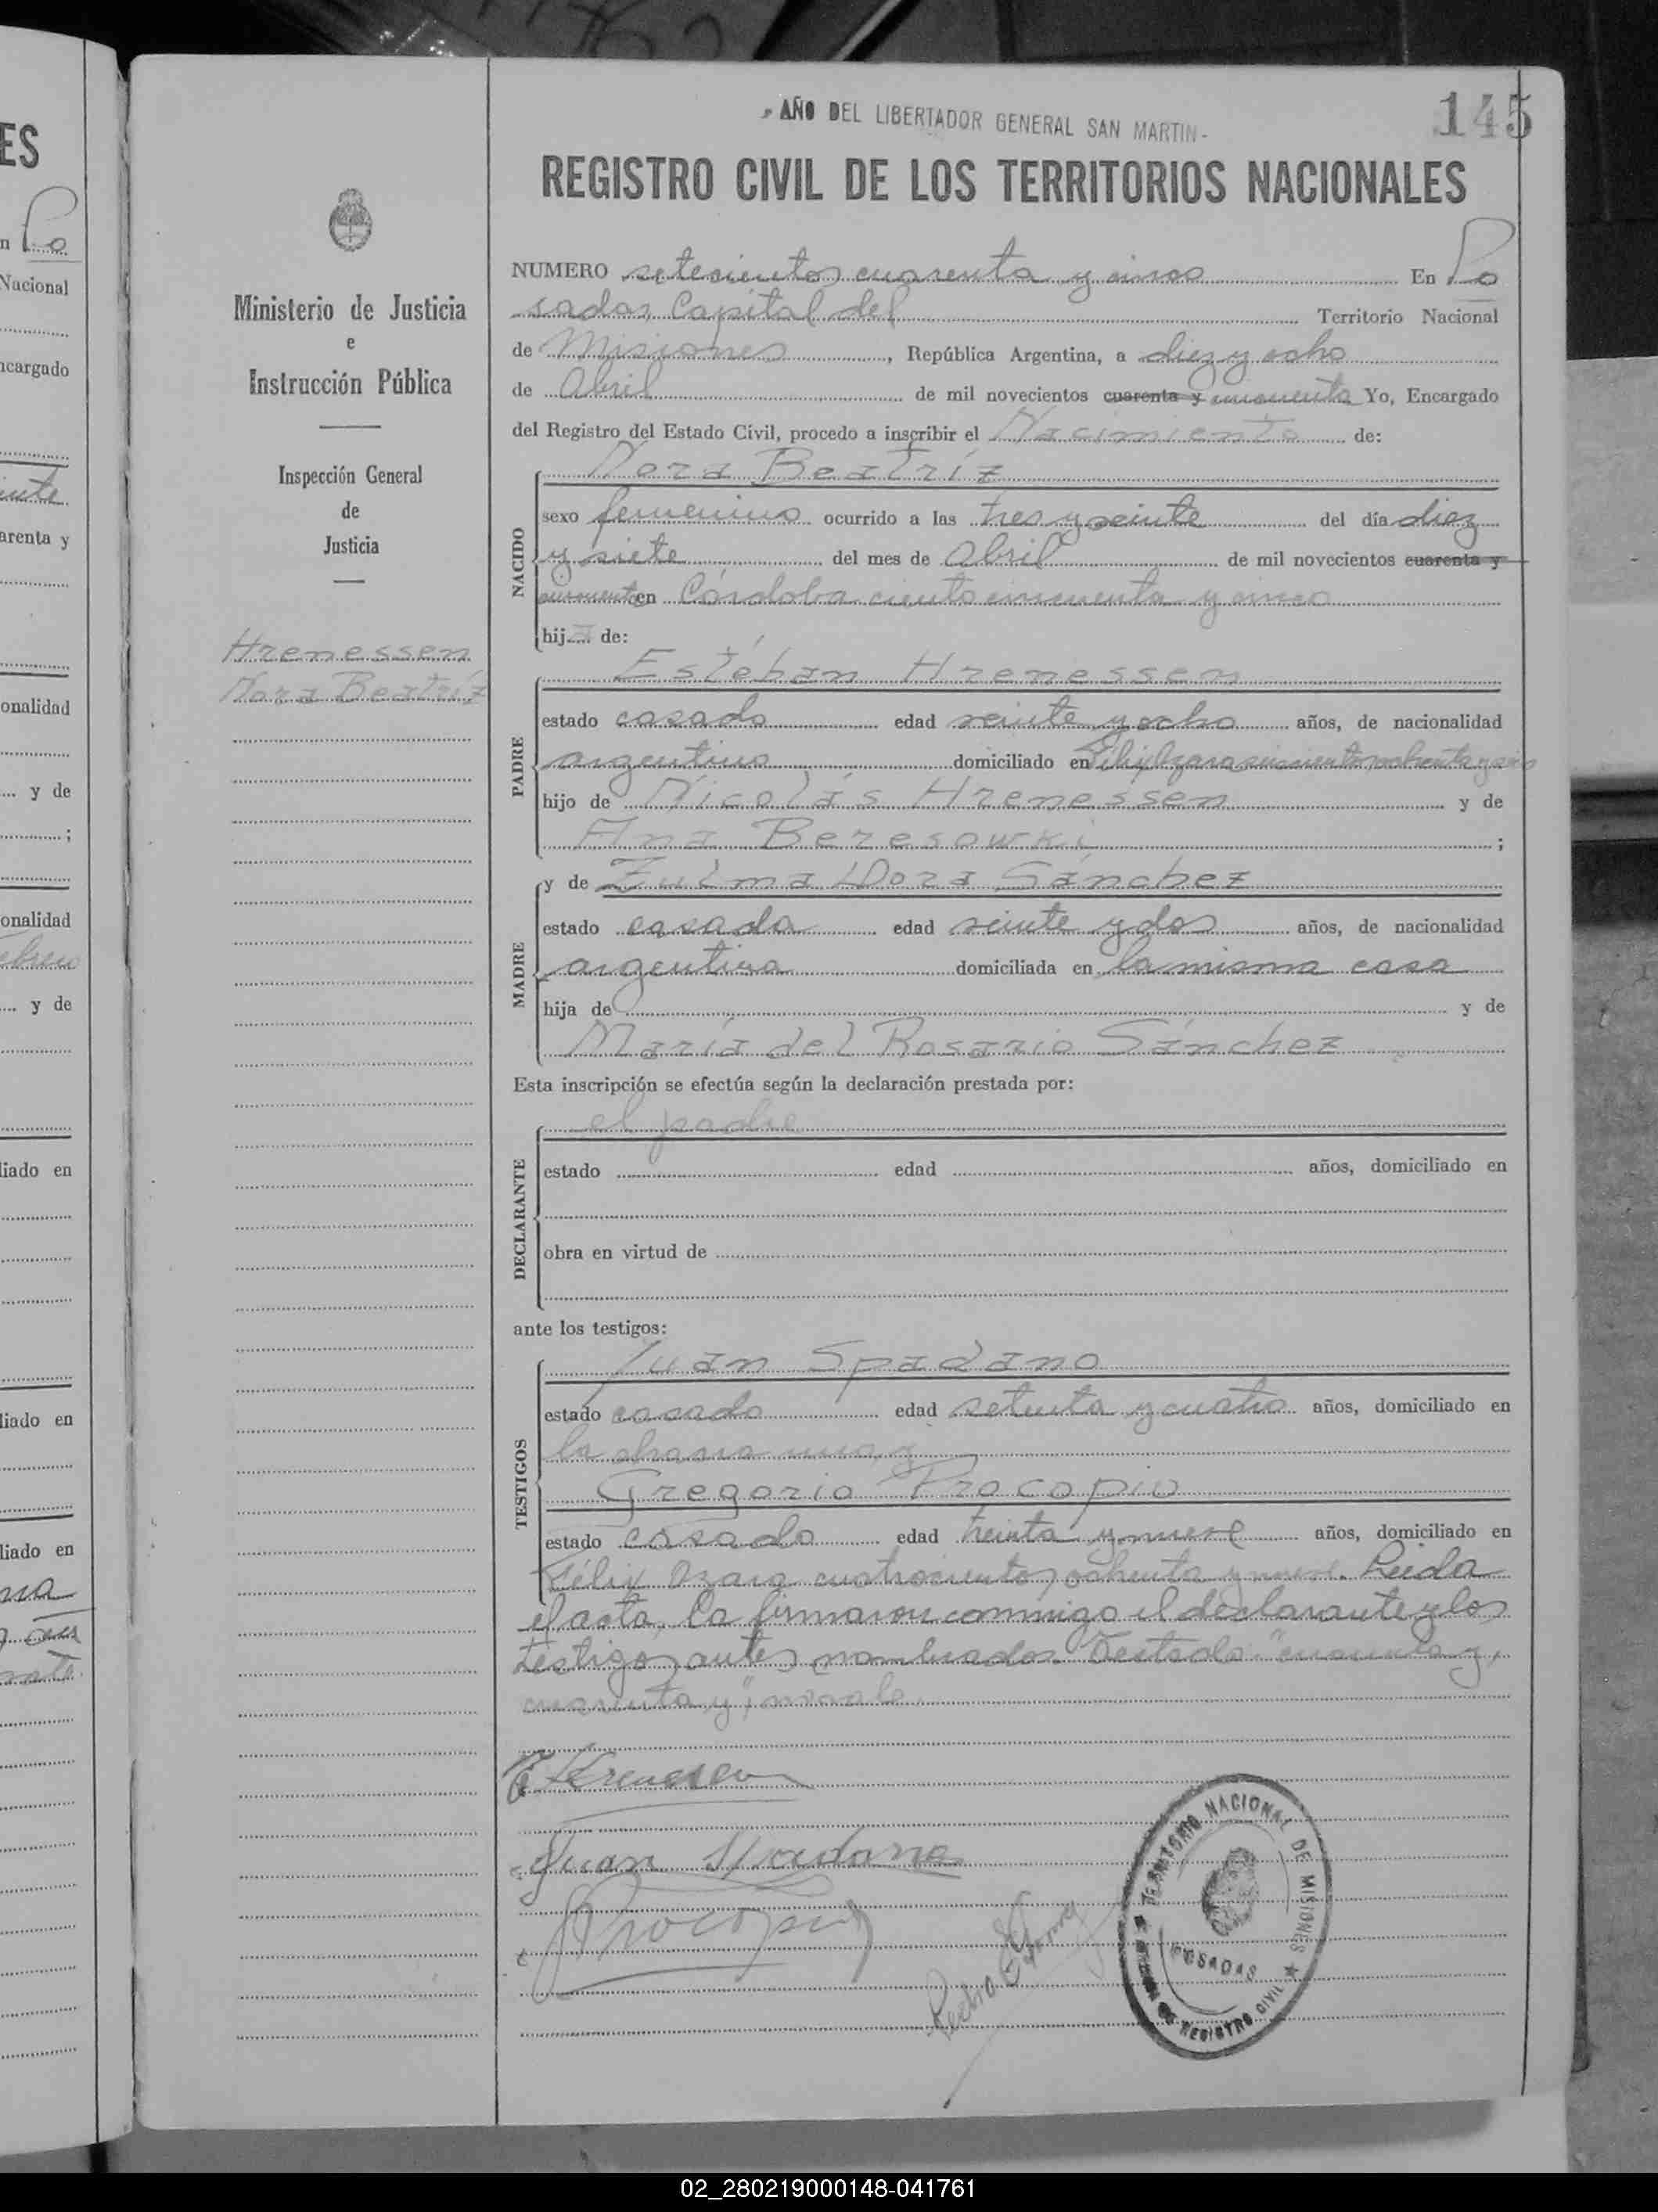 ES
n Po
Nacional
ncargado
arenta y
onalidad
... y de
;
onalidad
... y de
liado en
liado en
liado en
Ministerio de Justicia
e
Instrucción Pública
Inspección General
de
Justicia
Hrenessen
Nora Beatríz
AÑO DEL LIBERTADOR GENERAL SAN MARTIN
145
REGISTRO CIVIL DE LOS TERRITORIOS NACIONALES
NUMERO setecientos cuarenta y cinco En Po
sadas, Capital del Territorio Nacional
de Misiones, República Argentina, a diez y ocho
de Abril de mil novecientos cuarenta y cincuenta Yo, Encargado
del Registro del Estado Civil, procedo a inscribir el Nacimiento de:
Nora Beatríz
NACIDO
sexo femenino ocurrido a las tres y veinte del día diez
y siete del mes de Abril de mil novecientos cuarenta y
cincuenta en Córdoba ciento cincuenta y cinco
hija de:
Estéban Hrenessen
PADRE
estado casado edad veinte y ocho años, de nacionalidad
argentino domiciliado en Félix Azara
hijo de Nicolás Hrenessen y de
Ana Beresowki;
MADRE
y de Zulma Dora Sánchez
estado casada edad veinte y dos años, de nacionalidad
argentina domiciliada en la misma casa
hija de y de
María del Rosario Sánchez
Esta inscripción se efectúa según la declaración prestada por:
DECLARANTE
el padre
estado edad años, domiciliado en
obra en virtud de
ante los testigos:
TESTIGOS
Juan Spadano
estado casado edad setenta y cuatro años, domiciliado en
la chacra una, y
Gregorio Procopio
estado casado edad treinta y nueve años, domiciliado en
Félix Azara cuatrocientos ochenta y nueve. Leida
el acta, la firmaron conmigo el declarante y los
testigos antes nombrados. Testado: "cuarenta y,
cuarenta y", no vale.
E Hrenessen
Juan Spadano
Procopio
TERRITORIO NACIONAL DE MISIONES
POSADAS
REGISTRO CIVIL
02_280219000148-041761